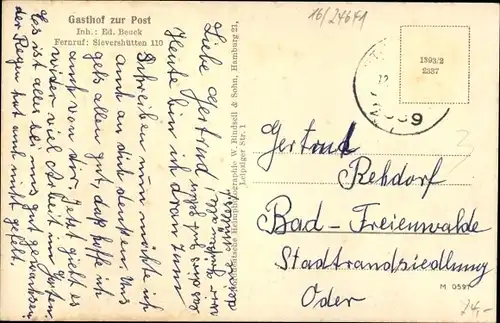 16/24641
Gasthof zur Post
Inh.: Ed. Beuck
Fernruf: Sievershütten 110
1393/2
2337
Norddeutsche Heimphotographie W. Bindseil & Sohn, Hamburg 21,
Leipziger Str. 1
M 0597
Liebe Gertrud!
Heute bin ich dran zum
Schreiben nun möchte ich
auch an dich denken. Uns
gets allen gut, daß hoffe ich
auch von dir. Jetzt giebt es
wieder viel Arbeit im Garten.
Es ist alles bei uns gut gewachsen
der Regen hat auch nicht gefehlt.
Gertrud
Rehdorf
Bad-Freienwalde
Stadtrandsiedlung
Oder
24,-